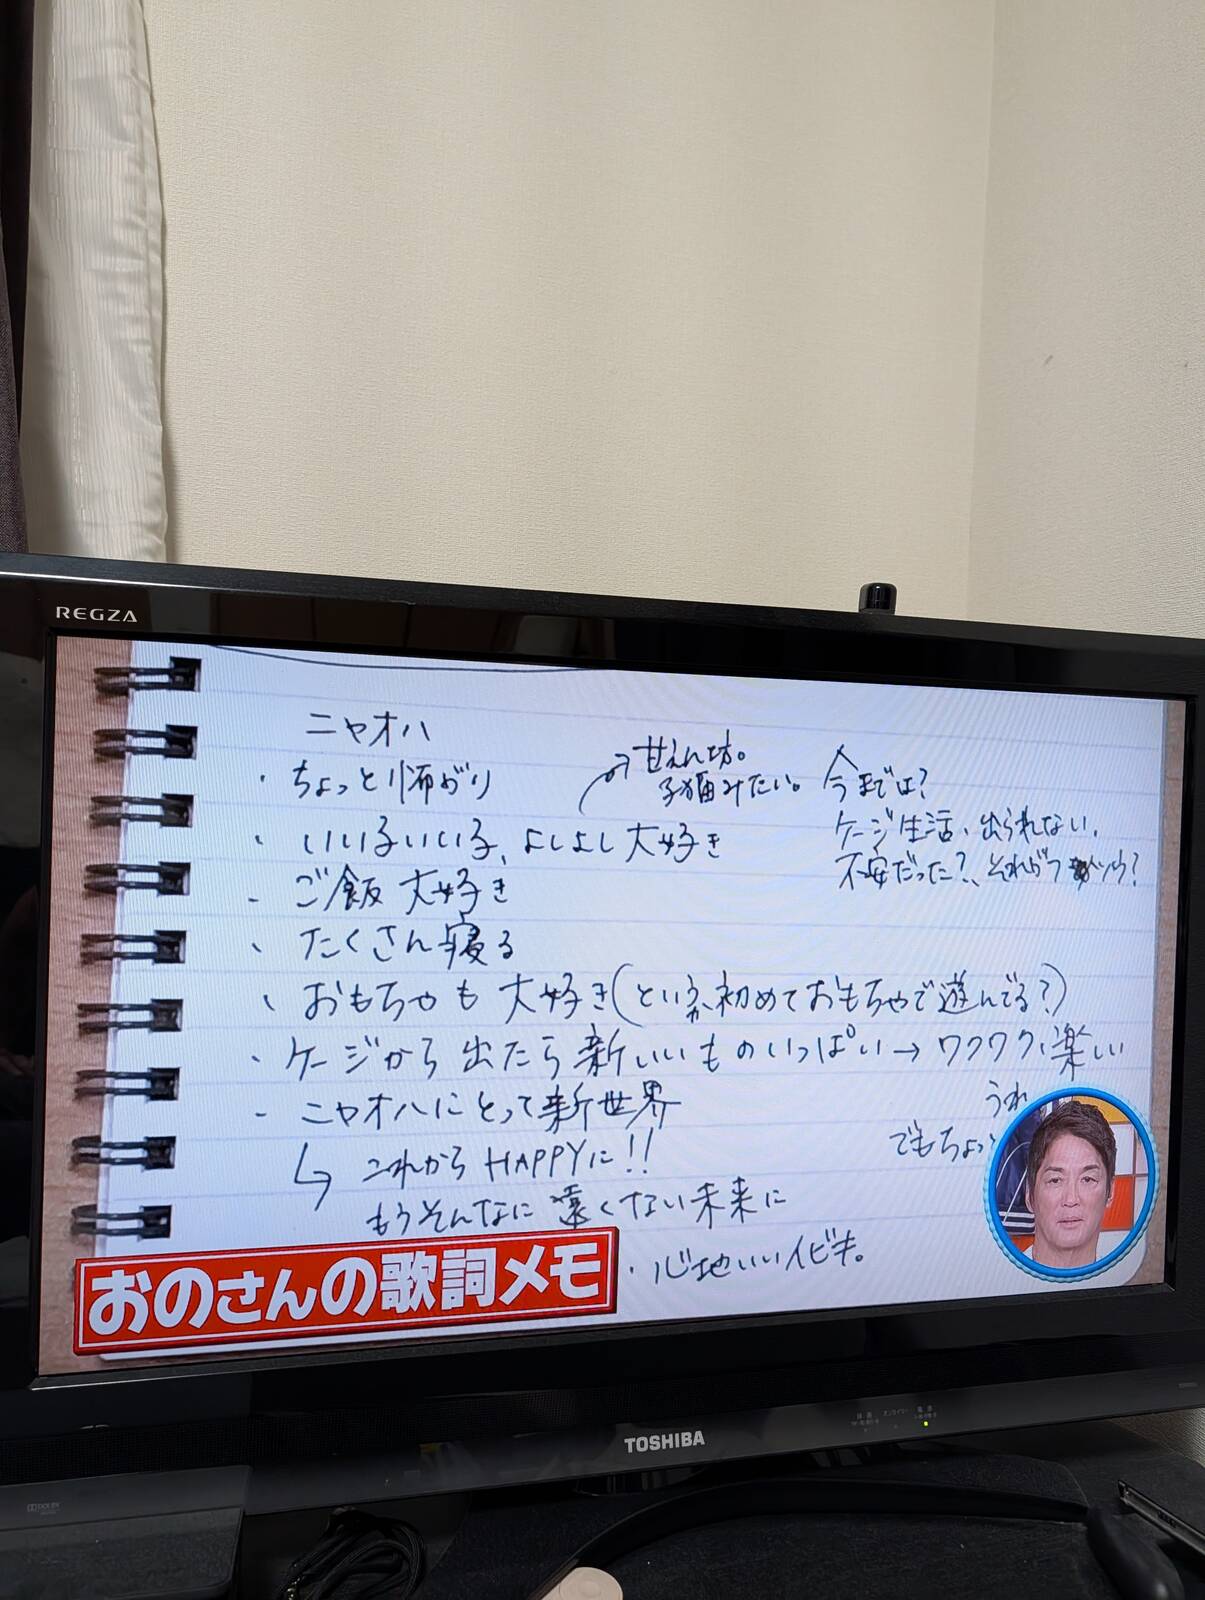 REGZA
ニャオハ
・ちょっと怖がり
甘えん坊。
子猫みたい。
今までは?
ケージ生活、出られない。
不安だった?、それがフツウ?
・いい子いい子、よしよし大好き
・ご飯 大好き
・たくさん寝る
・おもちゃも 大好き(というか初めておもちゃで遊んでる?)
・ケージから出たら新しいものいっぱい→ワクワク、楽しい
うれ
でもちょっ
・ニャオハにとって新世界
↳ これからHAPPYに!!
もうそんなに遠くない未来に
・心地いいイビキ。
おのさんの歌詞メモ
TOSHIBA